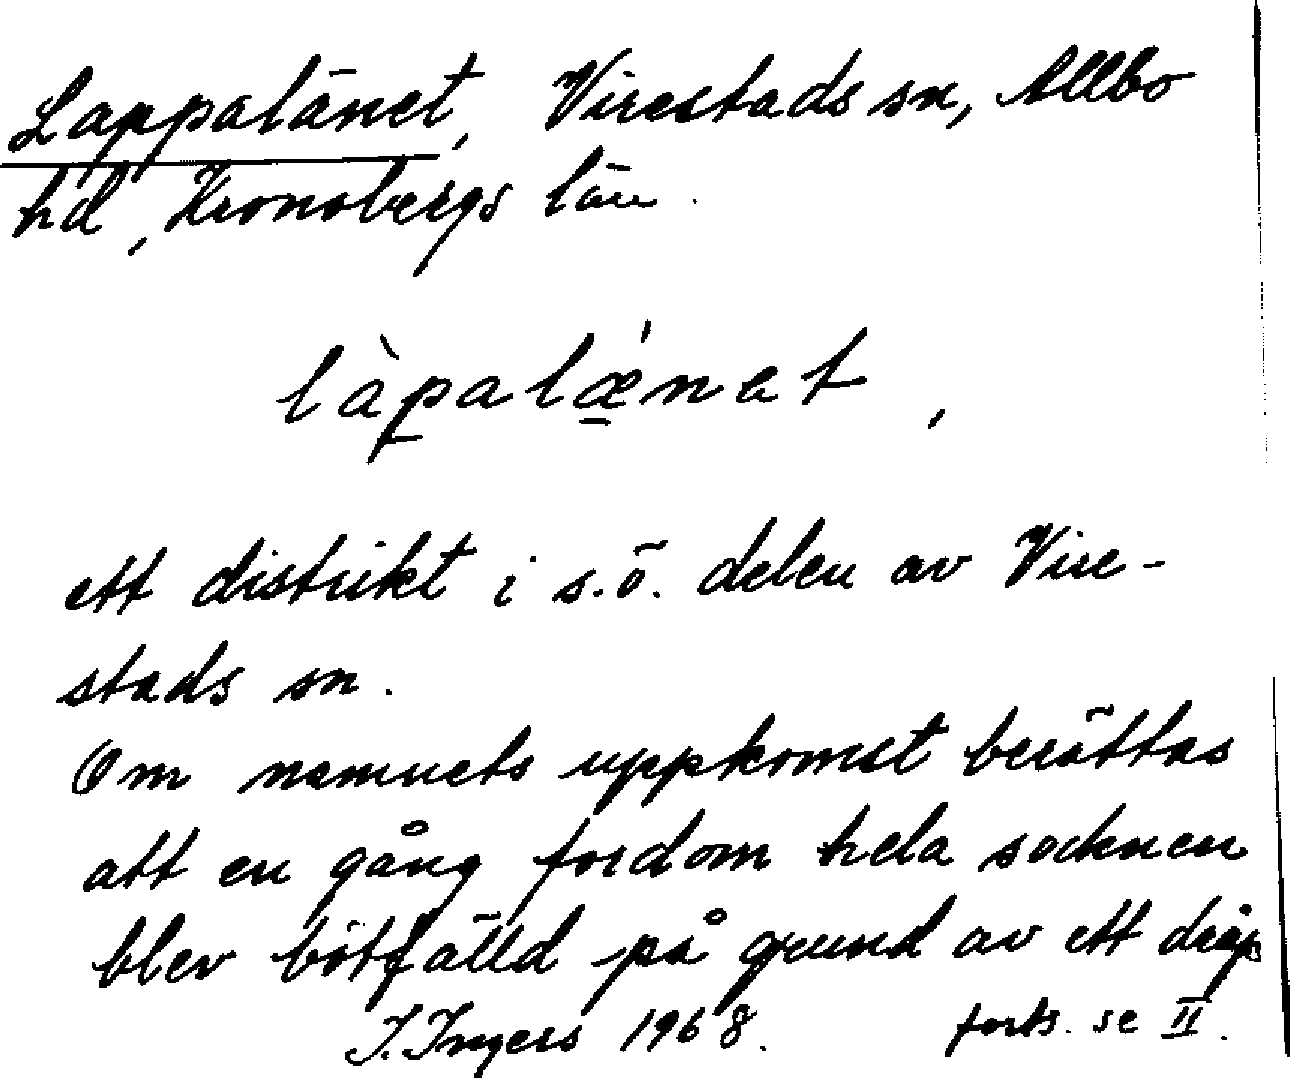 Lappalänet, Virestads sn, Allbo
hd, Kronobergs län.
làpalǽnat,
ett distrikt i s.ö. delen av Vire-
stads sn.
Om namnets uppkomst berättas
att en gång fordom hela socknen
blev bötfälld på grund av ett dråp
I. Ingers 1968. forts. se II.